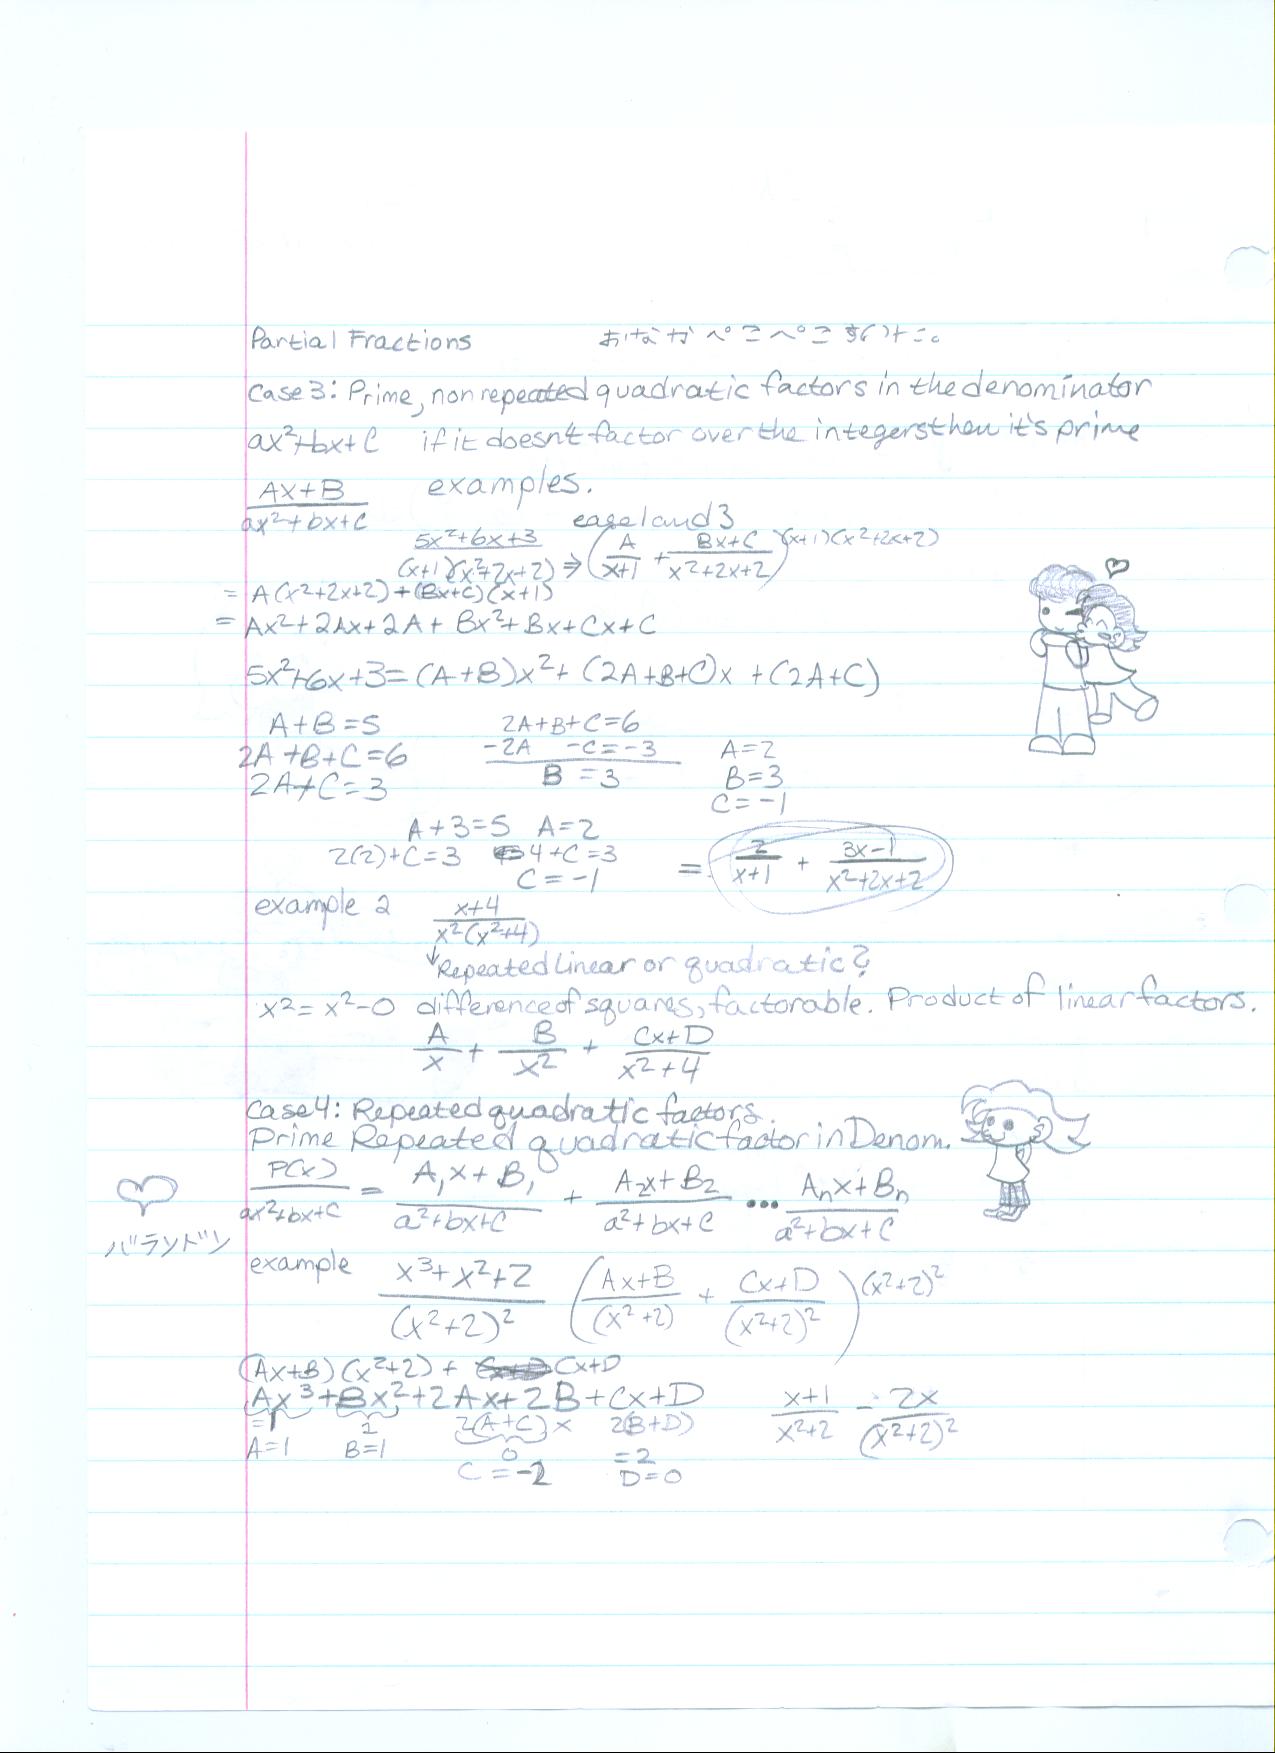 Partial Fractions おなかぺこぺこ
Case 3: Prime, non repeated quadratic factors in the denominator
ax²+bx+C if it doesn't factor over the integers then it's prime
Ax+B/ax²+bx+C examples.
case 1 and 3
5x²+6x+3/(x+1)(x²+2x+2) ⇒ (A/x+1 + Bx+C/x²+2x+2)(x+1)(x²+2x+2)
= A(x²+2x+2)+(Bx+C)(x+1)
= Ax²+2Ax+2A+Bx²+Bx+Cx+C
5x²+6x+3=(A+B)x²+(2A+B+C)x+(2A+C)
A+B=5 2A+B+C=6
2A+B+C=6 -2A -C=-3 A=2
2A+C=3 B=3 B=3
C=-1
A+3=5 A=2
2(2)+C=3 4+C=3 = 2/x+1 + 3x-1/x²+2x+2
C=-1
example 2 x+4/x²(x²+4)
↓Repeated Linear or quadratic?
x²=x²-0 difference of squares, factorable. Product of linear factors.
A/x + B/x² + Cx+D/x²+4
Case 4: Repeated quadratic factors.
Prime Repeated quadratic factor in Denom.
P(x)/ax²+bx+C = A₁x+B₁/a²+bx+C + A₂x+B₂/a²+bx+C ... Aₙx+Bₙ/a²+bx+C
バランドン
example x³+x²+2/(x²+2)² (Ax+B/(x²+2) + Cx+D/(x²+2)²)(x²+2)²
(Ax+B)(x²+2)+ Cx+D
Ax³+Bx²+2Ax+2B+Cx+D x+1/x²+2 - 2x/(x²+2)²
=1 1 2(A+C)x 2(B+D)
A=1 B=1 0 =2
C=-2 D=0